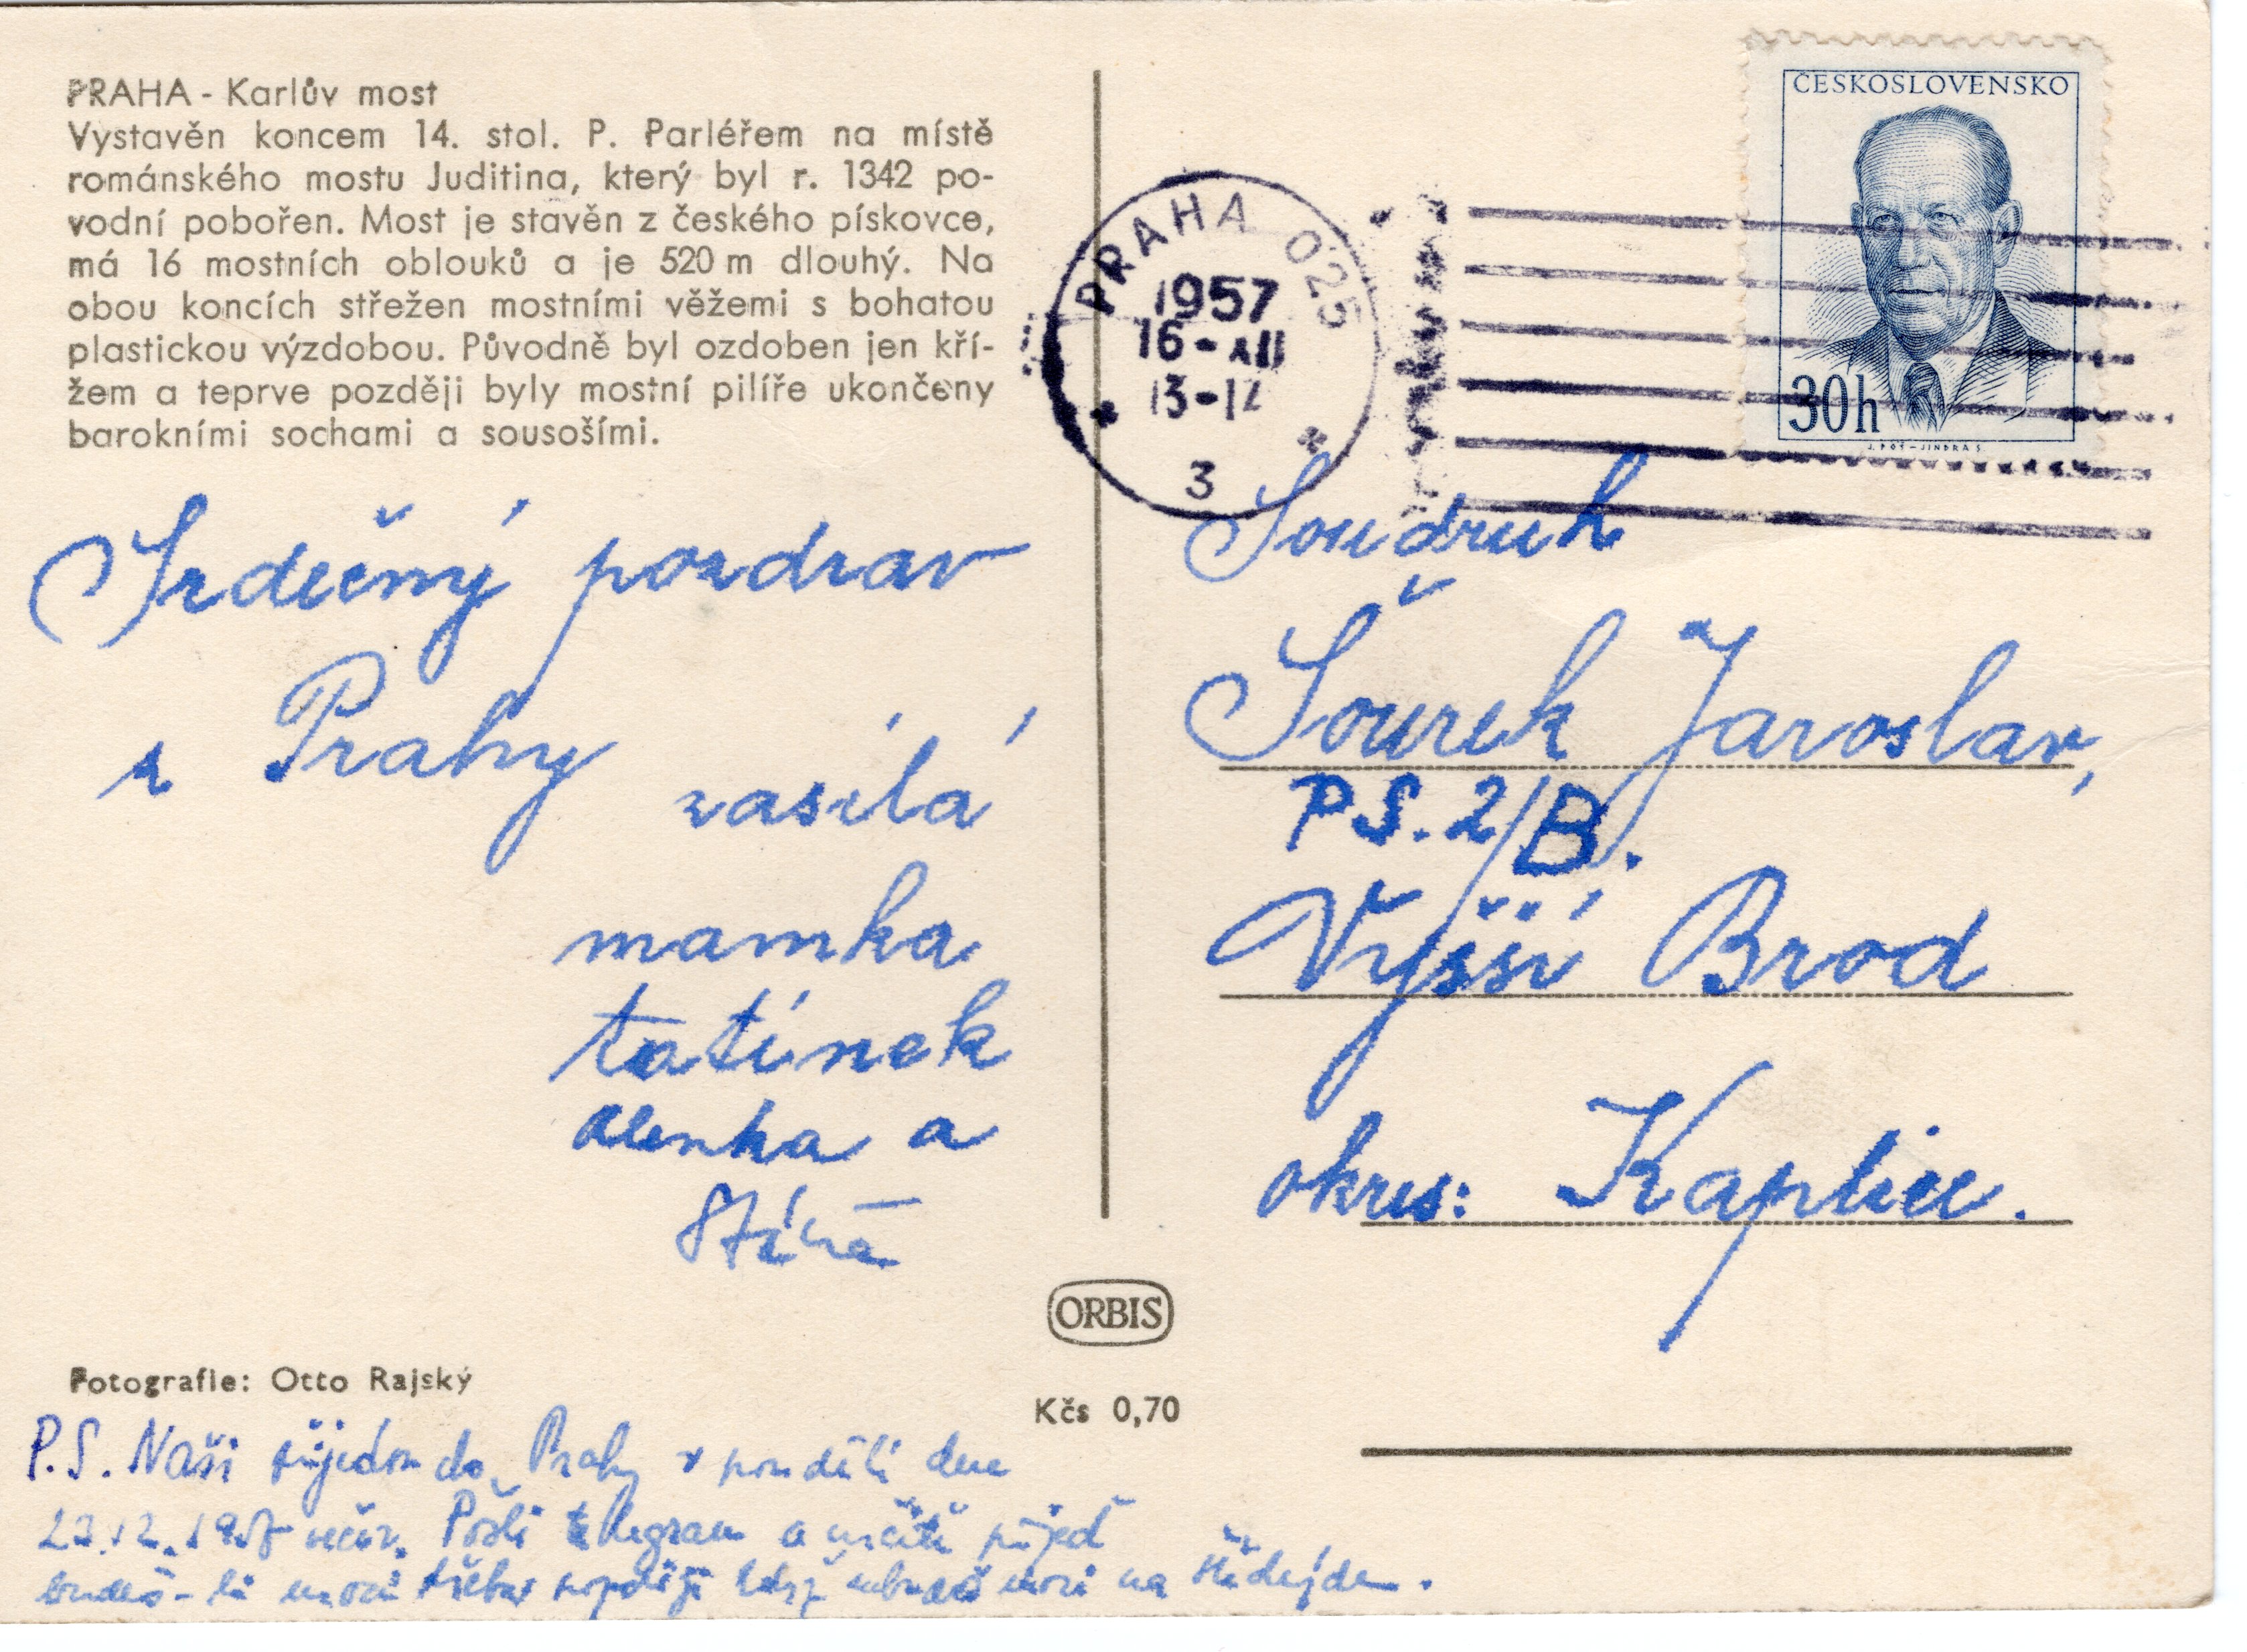 PRAHA - Karlův most
Vystavěn koncem 14. stol. P. Parléřem na místě
románského mostu Juditina, který byl r. 1342 po-
vodní pobořen. Most je stavěn z českého pískovce,
má 16 mostních oblouků a je 520 m dlouhý. Na
obou koncích střežen mostními věžemi s bohatou
plastickou výzdobou. Původně byl ozdoben jen kří-
žem a teprve později byly mostní pilíře ukončeny
barokními sochami a sousošími.
Srdečný pozdrav
z Prahy zasílá
mamka
tatínek
Alenka a
Fotografie: Otto Rajský
P.S. Naši přijedou do Prahy v pondělí dne
12. 1957 večer. Pošli telegram a určitě přijeď
budeš-li moci třeba později když nebudeš moci na Štědrý den.
ORBIS
Kčs 0,70
ČESKOSLOVENSKO
30h
J. ŠVÁB-JINDRA S.
PRAHA 025
1957
16-XII
13-12
3
Soudruh
Šourek Jaroslav,
PS. 2/B.
Vyšší Brod
okres: Kaplice.